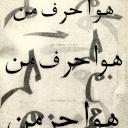 هوا حرف من
هوا حرف من
هوا حز من